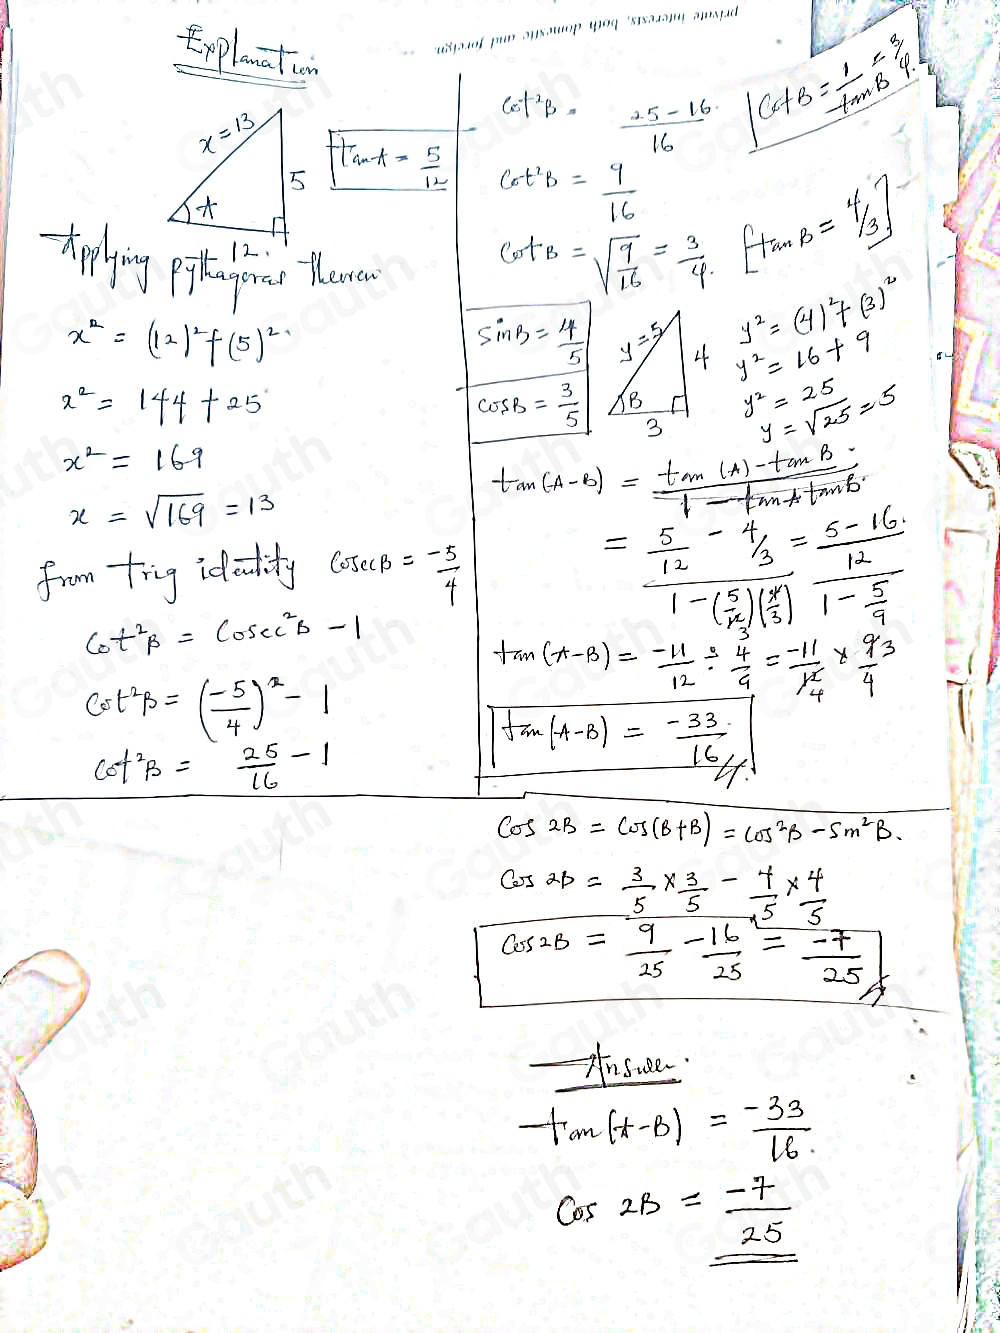 private interests, both domestic and foreign.
Explanation
x = 13
5
A
12.
tanA = 5/12
Applying Pythagoras theorem
x² = (12)² + (5)²
x² = 144 + 25
x² = 169
x = √169 = 13
from trig identity CosecB = -5/4
Cot²B = Cosec²B - 1
Cot²B = (-5/4)² - 1
Cot²B = 25/16 - 1
Cot²B = 25-16/16
CotB = 1/tanB = 3/4.
Cot²B = 9/16
CotB = √9/16 = 3/4. [tanB = 4/3]
SinB = 4/5
CosB = 3/5
y = 5
4
B
3
y² = (4)² + (3)²
y² = 16 + 9
y² = 25
y = √25 = 5
tan(A-B) = tan(A) - tanB / 1 - tanA tanB.
= 5/12 - 4/3 / 1 - (5/12)(4/3) = 5-16/12 / 1 - 5/9
tan(A-B) = -11/12 ÷ 4/9 = -11/12 × 9/4
tan(A-B) = -33/16
Cos 2B = Cos(B+B) = Cos²B - Sin²B.
Cos 2B = 3/5 × 3/5 - 4/5 × 4/5
Cos2B = 9/25 - 16/25 = -7/25
Answer.
tan(A-B) = -33/16.
Cos 2B = -7/25
Gauth